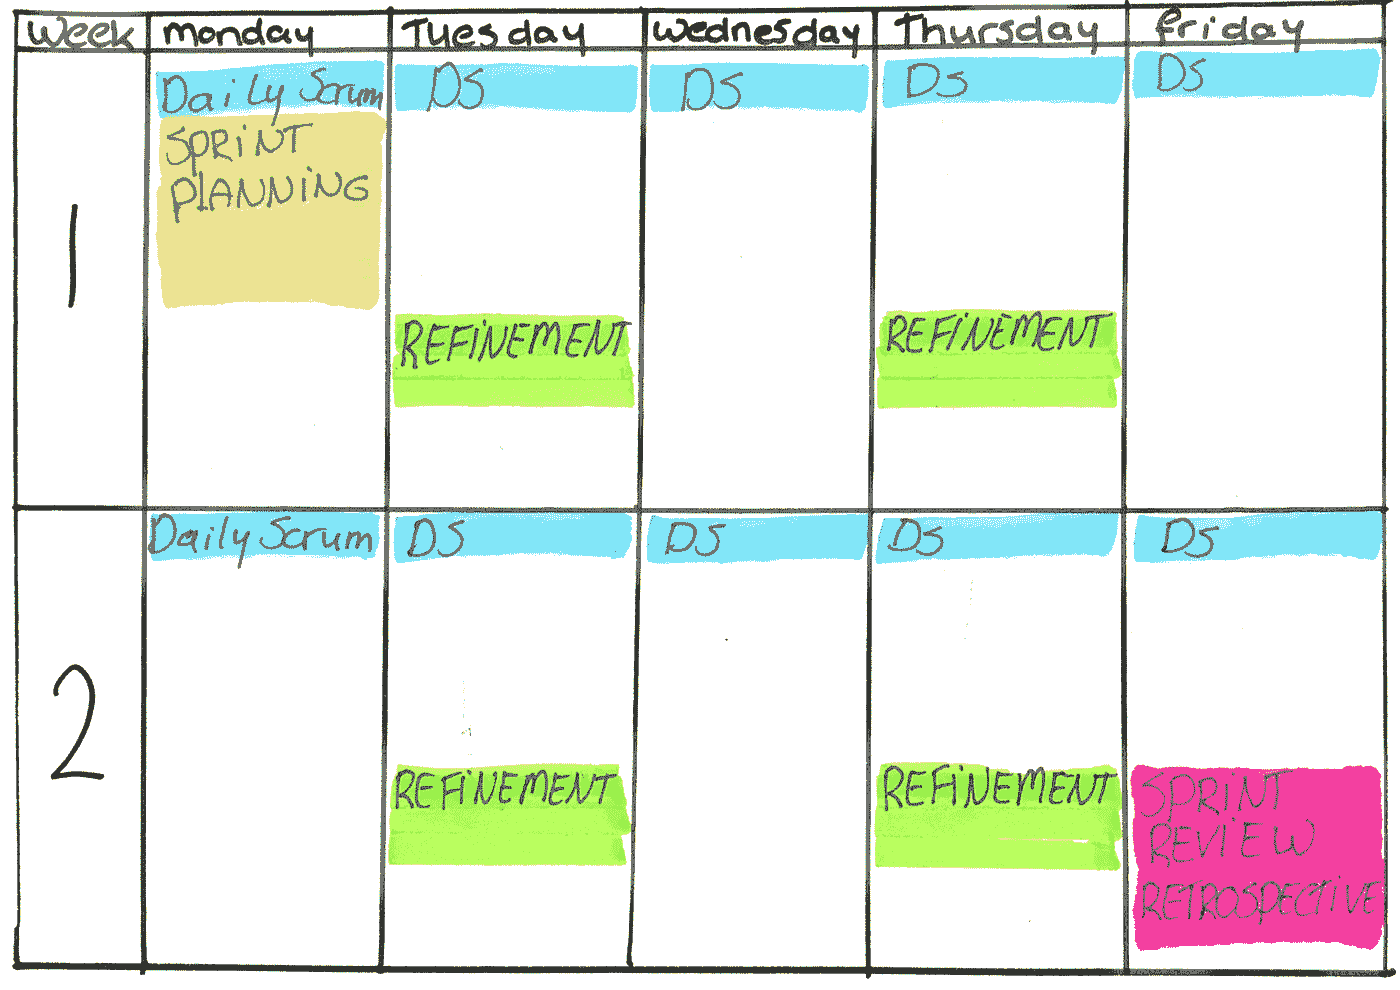 Week monday Tuesday Wednesday Thursday friday
1
Daily Scrum DS DS DS DS
SPRiNT
PLANNiNG
REFiNEMENT REFiNEMENT
2
Daily Scrum DS DS DS DS
REFiNEMENT REFiNEMENT
SPRiNT
REViEW
RETROSPECTiVE